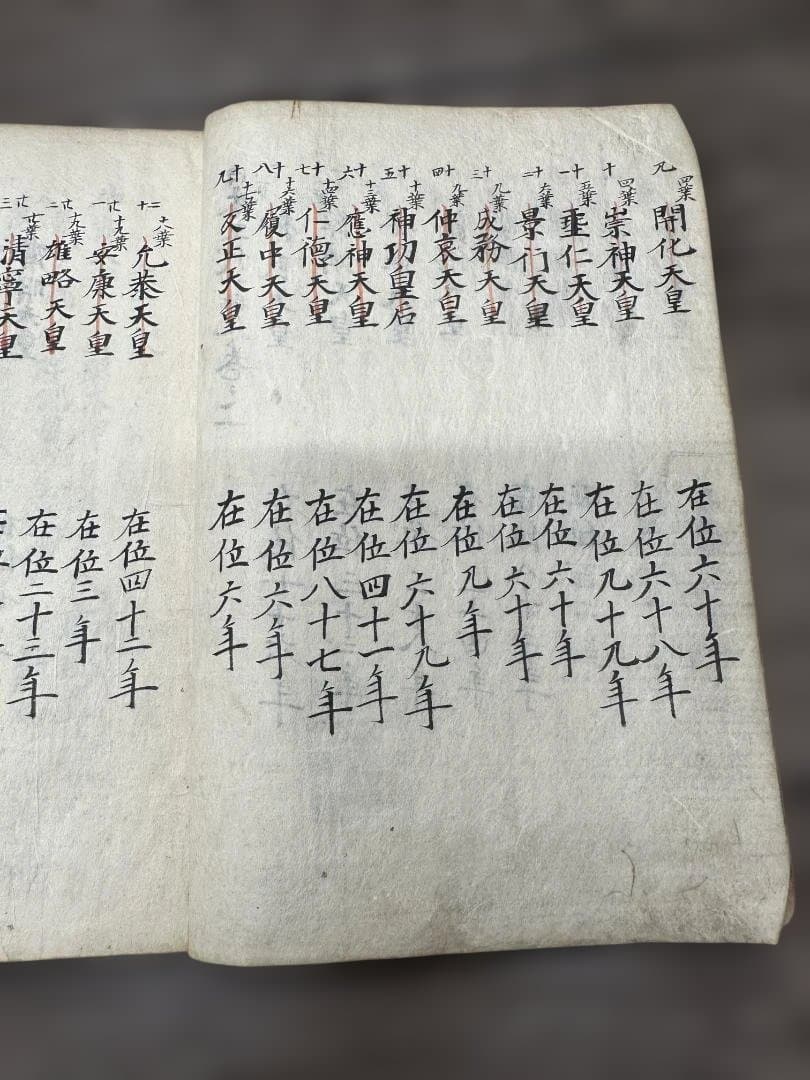 九 四葉 開化天皇 在位六十年
十 四葉 崇神天皇 在位六十八年
十一 五葉 垂仁天皇 在位九十九年
十二 六葉 景行天皇 在位六十年
十三 九葉 成務天皇 在位六十年
十四 九葉 仲哀天皇 在位九年
十五 十葉 神功皇后 在位六十九年
十六 十三葉 應神天皇 在位四十一年
十七 十四葉 仁德天皇 在位八十七年
十八 十六葉 履中天皇 在位六年
十九 反正天皇 在位六年
二十 十八葉 允恭天皇 在位四十二年
廿一 十九葉 安康天皇 在位三年
廿二 十九葉 雄略天皇 在位二十三年
廿三 清寧天皇